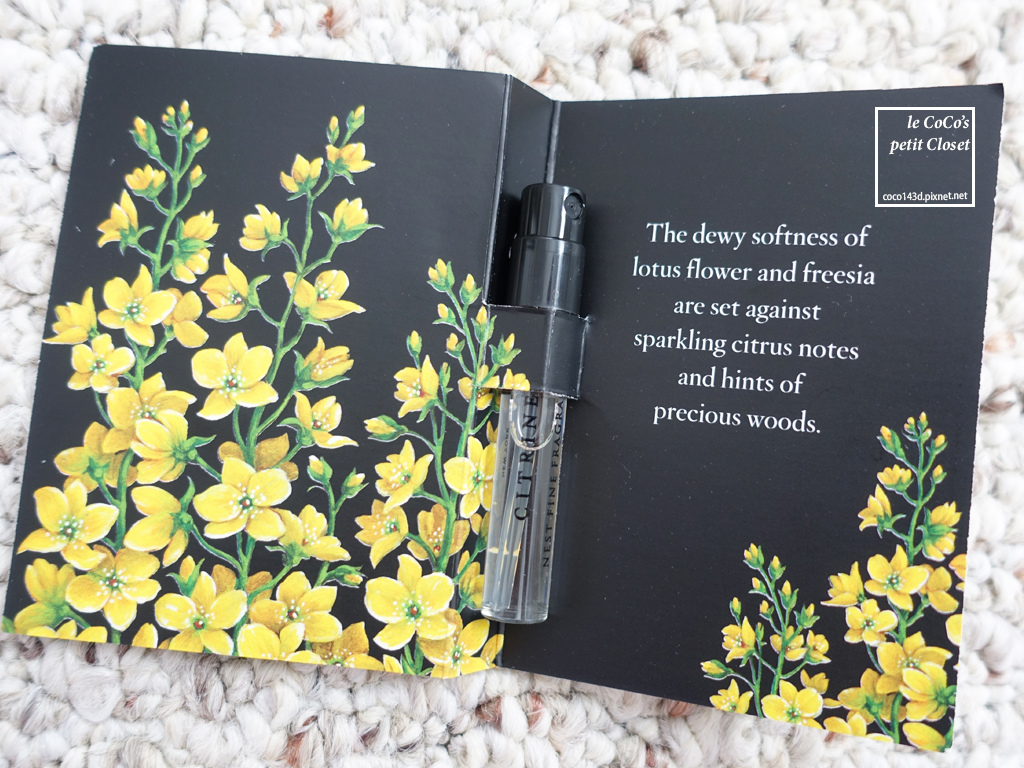 le CoCo's
petit Closet
coco143d.pixnet.net
The dewy softness of
lotus flower and freesia
are set against
sparkling citrus notes
and hints of
precious woods.
CITRINE
NEST FINE FRAGRA